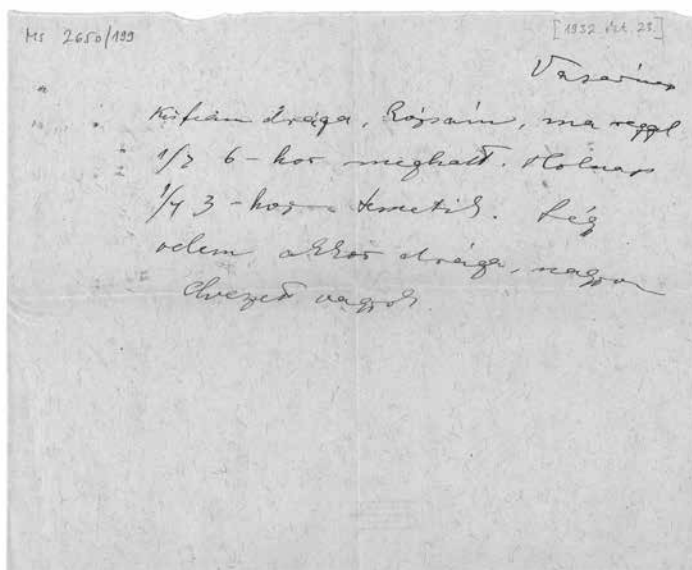 Ms 2650/199
[1932 okt. 23.]
Vasárnap
Kisfiam drága, Rózsám, ma reggel
1/2 6-kor meghalt. Holnap
1/4 3-kor temetik. Légy
velem akkor drága, nagyon
elveszett vagyok